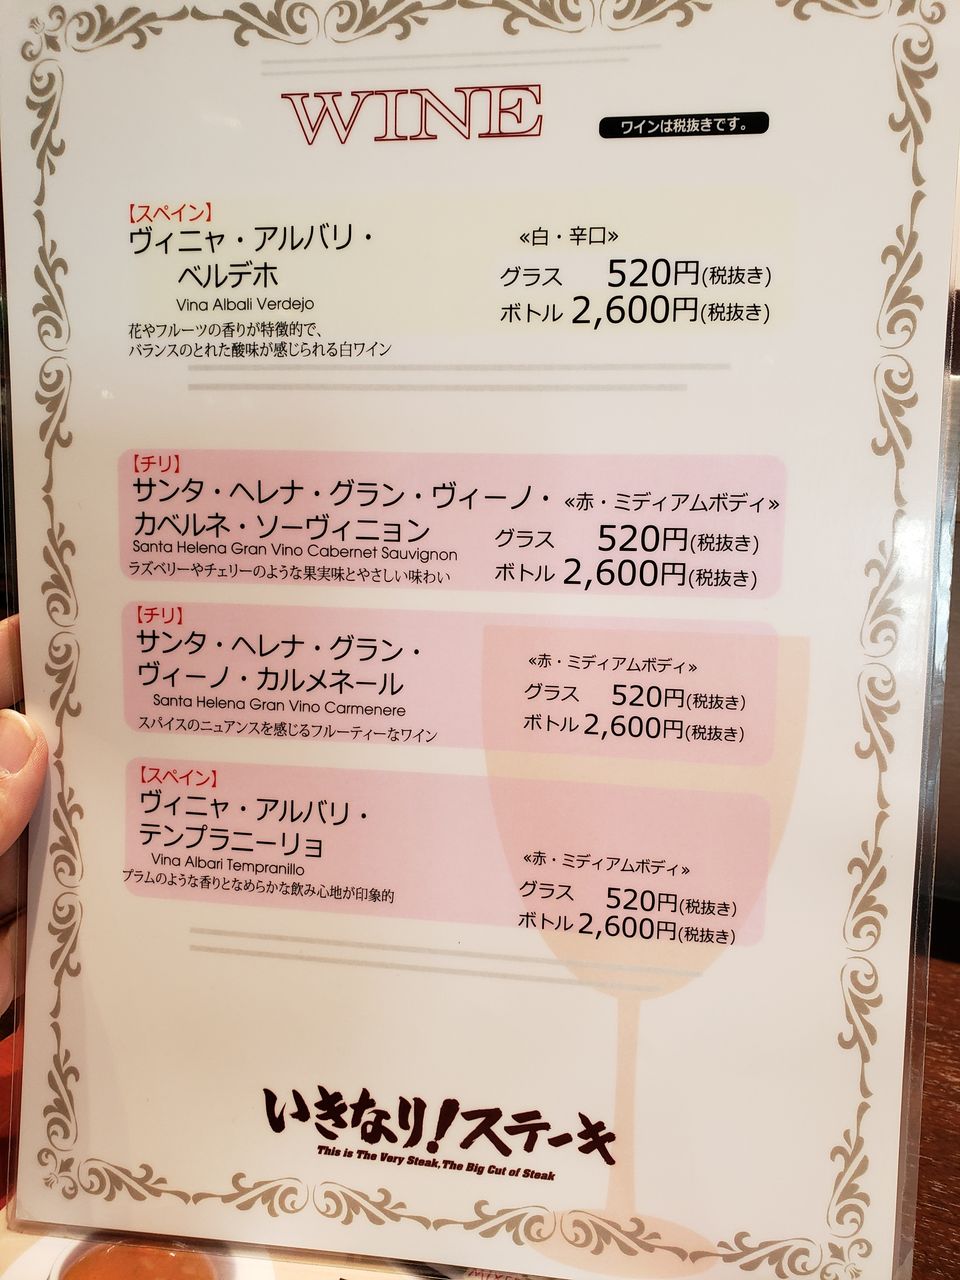 WINE
ワインは税抜きです。
【スペイン】
ヴィニャ・アルバリ・
ベルデホ
Vina Albali Verdejo
花やフルーツの香りが特徴的で、
バランスのとれた酸味が感じられる白ワイン
≪白・辛口≫
グラス 520円(税抜き)
ボトル 2,600円(税抜き)
【チリ】
サンタ・ヘレナ・グラン・ヴィーノ・
カベルネ・ソーヴィニョン
Santa Helena Gran Vino Cabernet Sauvignon
ラズベリーやチェリーのような果実味とやさしい味わい
≪赤・ミディアムボディ≫
グラス 520円(税抜き)
ボトル 2,600円(税抜き)
【チリ】
サンタ・ヘレナ・グラン・
ヴィーノ・カルメネール
Santa Helena Gran Vino Carmenere
スパイスのニュアンスを感じるフルーティーなワイン
≪赤・ミディアムボディ≫
グラス 520円(税抜き)
ボトル 2,600円(税抜き)
【スペイン】
ヴィニャ・アルバリ・
テンプラニーリョ
Vina Albari Tempranillo
プラムのような香りとなめらかな飲み心地が印象的
≪赤・ミディアムボディ≫
グラス 520円(税抜き)
ボトル 2,600円(税抜き)
いきなり!ステーキ
This is The Very Steak, The Big Cut of Steak